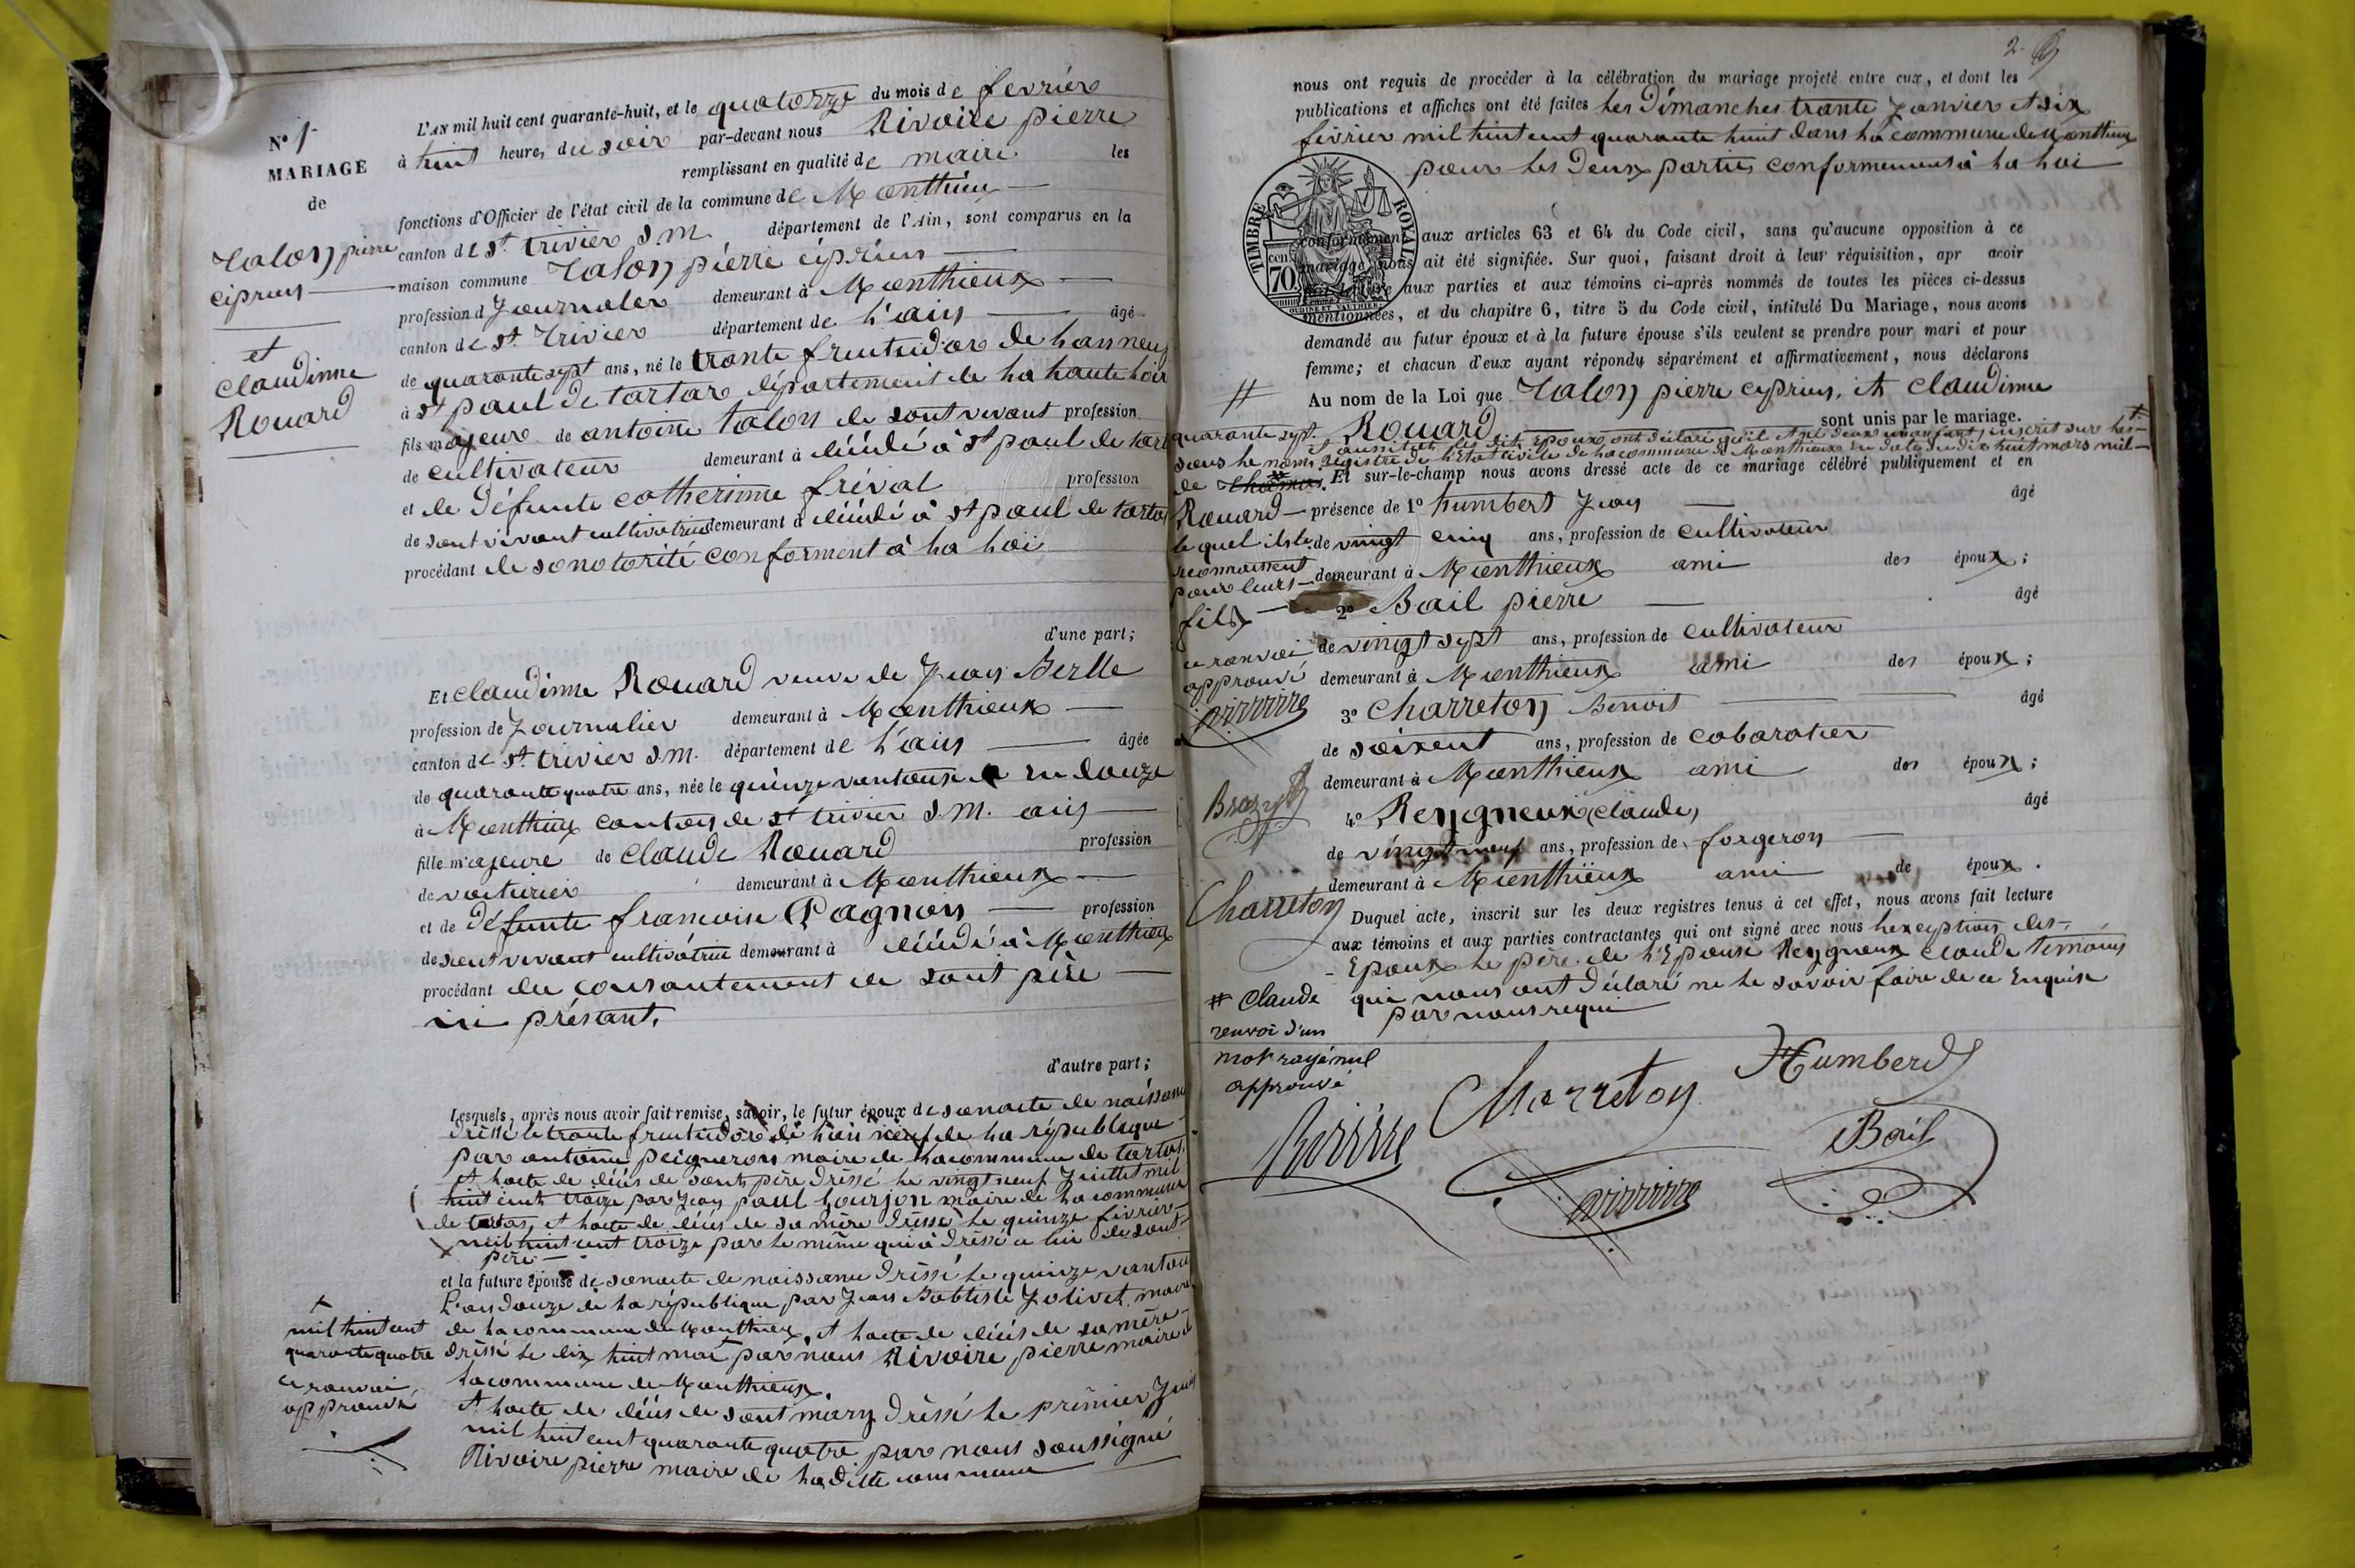 N° 1
MARIAGE
de
Talon pierre
ciprien
et
claudinne
Rouard
L'AN mil huit cent quarante-huit, et le quatorze du mois de fevrier
à huit heures du soir par-devant nous Rivoire pierre
remplissant en qualité de maire les
fonctions d'Officier de l'état civil de la commune de Monthieux
canton de st. trivier s.m. département de l'Ain, sont comparus en la
maison commune Talon pierre ciprien
profession d Journalier demeurant à Monthieux
canton de st. trivier département de l'ain âgé
de quarante sept ans, né le trante fruitidor de han neuf
à st paul de tartas département de ha haute hoir
fils majeur de antoine talon de sont vivant profession
de cultivateur demeurant à décédé à st paul de tart
et de défunte catherinne fréval profession
de sont vivant cultivatrice demeurant à décédé à st paul de tartas
procédant de sonotorité conforment à ha hoi
d'une part;
Et claudinne Rouard veuve de Jean Berlle
profession de Journalier demeurant à Monthieux
canton de st. trivier s.m. département de l'ain âgée
de quarante quatre ans, née le quinze vantouse en douze
à Monthieux canton de st trivier s.m. ain
fille majeure de claude Rouard profession
de voiturier demeurant à Monthieux
et de défunte francoise Pagnon profession
de sont vivant cultivatrice demeurant à décédé à Monthieux
procédant du consantement de sont père
ici présant.
d'autre part;
Lesquels, après nous avoir fait remise, savoir, le futur époux de sonacte de naissance
dressé le trante fruitidor de han neuf de ha république
par antoine peigneron maire de hacommune de tartas
et hacte de décès de sont père dressé he vingt neuf Juillet mil
huit cent troize par Jean paul hourjon maire de ha commune
de tartas, et hacte de décès de sa mère dressé he quinze février
mil huit cent troize par he même qui à dressé ce lui de sont
père
et la future épouse de sonacte de naissance dressé he quinze vantou
l'an douze de ha république par Jean Babtiste Jolivet maire
de hacommune de Monthieux, et hacte de décès de sa mère
dressé he dix huit mai par nous Rivoire pierre maire de
hacommune de Monthieux.
et hacte de décès de sont mary dressé he premier Juin
mil huit cent quarante quatre par nous soussigné
Rivoire pierre maire de hadite commune
mil huit cent
quarante quatre
ce ranvoi
approuvé
2
nous ont requis de procéder à la célébration du mariage projeté entre eux, et dont les
publications et affiches ont été faites hes Dimanches trante Janvier et six
février mil huit cent quarante huit dans ha commune de Monthieux
pour hes deux parties conformement à ha hoi
TIMBRE ROYAL
70 cen
OUDINÉ ET VAUTHIER
conformément aux articles 63 et 64 du Code civil, sans qu'aucune opposition à ce
mariage nous ait été signifiée. Sur quoi, faisant droit à leur réquisition, apr avoir
lecture aux parties et aux témoins ci-après nommés de toutes les pièces ci-dessus
mentionnées, et du chapitre 6, titre 5 du Code civil, intitulé Du Mariage, nous avons
demandé au futur époux et à la future épouse s'ils veulent se prendre pour mari et pour
femme; et chacun d'eux ayant répondu séparément et affirmativement, nous déclarons
Au nom de la Loi que Talon pierre ciprien, et claudinne
Rouard sont unis par le mariage.
et aussitôt les dits époux ont déclaré qu'il est né deux un anfant, inscrit sur hes
registre de l'Etat civile de hacommune de Monthieux en date du dix huit mars mil
Et sur-le-champ nous avons dressé acte de ce mariage célébré publiquement et en
présence de 1° humbert Jean âgé
de vingt cinq ans, profession de cultivateur
demeurant à Monthieux ami des époux;
2° Bail pierre âgé
de vingt sept ans, profession de cultivateur
demeurant à Monthieux ami des époux;
3° Charreton Benoit âgé
de soixent ans, profession de cabaratier
demeurant à Monthieux ami des époux;
4° Reygneux (claude) âgé
de vingt neuf ans, profession de forgeron
demeurant à Monthieux ami de époux.
Duquel acte, inscrit sur les deux registres tenus à cet effet, nous avons fait lecture
aux témoins et aux parties contractantes qui ont signé avec nous hexeption des
Epoux he père de l'Epouse Reygneux claude témoins
qui nous ont déclaré ne he savoir faire de ce Enquis
par nous requi
quarante sept
sous he nom
de thomas
Rouard
le quel ils le
reconnaissent
pour leurs
fils
ce ranvoi
approuvé
Charreton
# Claude
renvoi d'un
mot rayé nul
approuvé
Charreton
Humberd
Bail